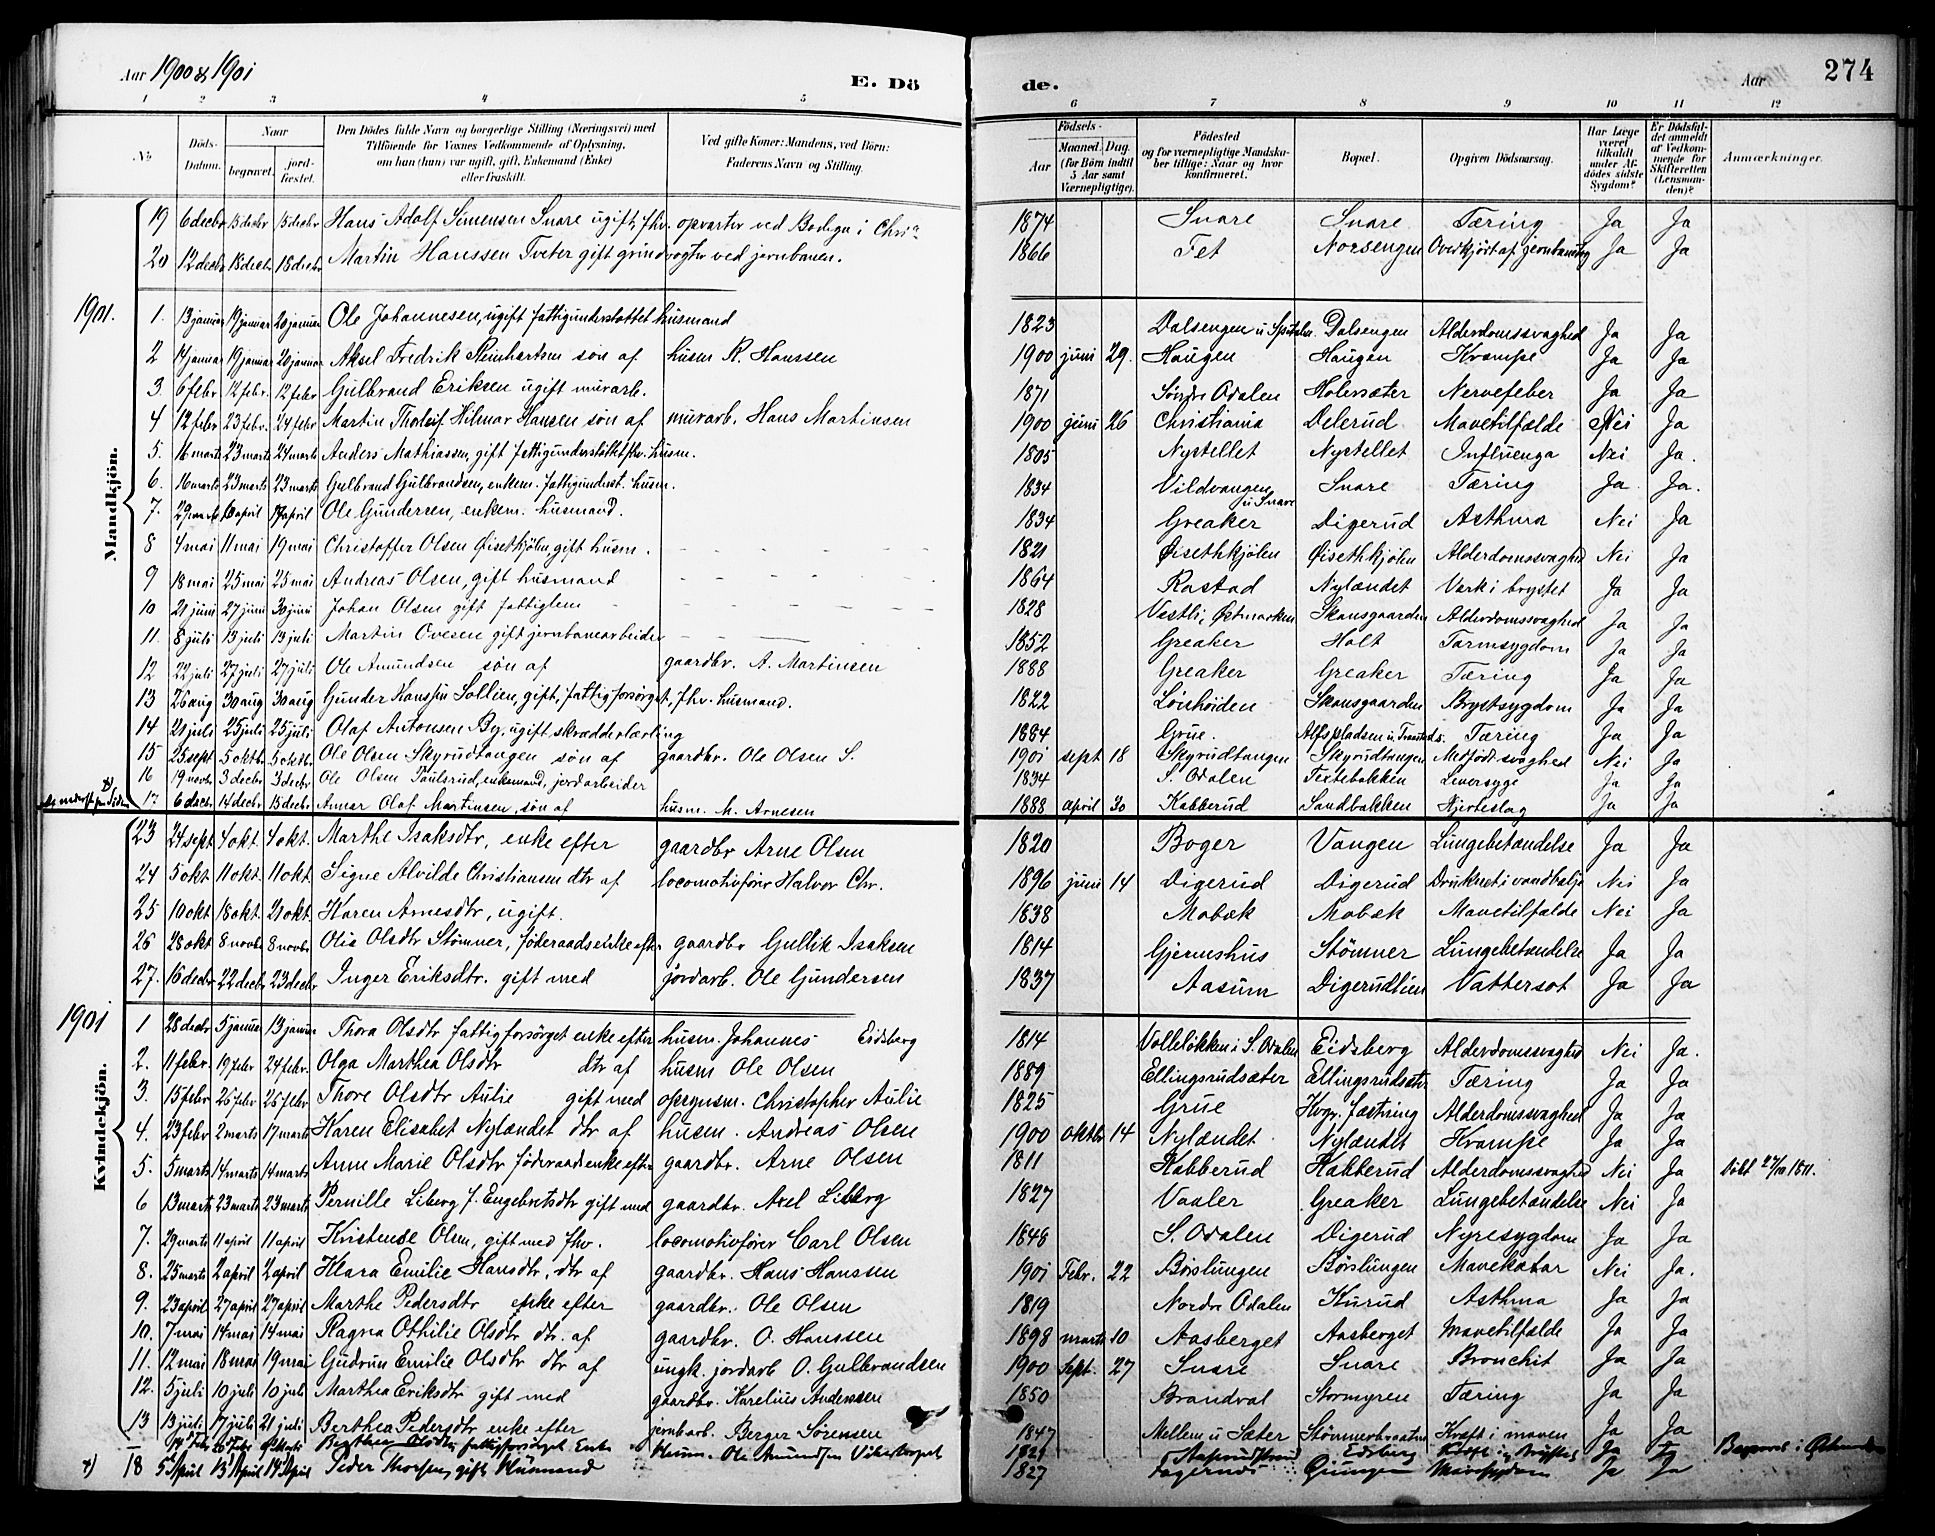 Aar 1900 & 1901 E. Dö de. Aar 274
1 2 3 4 5 6 7 8 9 10 11 12
No Döds-Datum. Naar begravet. jordfæstet. Den Dödes fulde Navn og borgerlige Stilling (Næringsvei) med Tilföiende for Voxnes Vedkommende af Oplysning, om han (hun) var ugift, gift, Enkemand (Enke) eller fraskilt. Ved gifte Koner: Mandens, ved Börn: Faderens Navn og Stilling. Födsels- Aar Maaned. Dag. (for Börn indtil 5 Aar samt Værnepligtige). Födested og for værnepligtige Mandskaber tillige: Naar og hvor konfirmeret. Bopæl. Opgiven Dödsaarsag. Har Læge været tilkaldt under Afdödes sidste Sygdom? Er Dödsfaldet anmeldt af Vedkommende for Skifteretten (Lensmanden)? Anmærkninger.
Mandkjön.
19 6 decbr 15 decbr 15 decbr Hans Adolf Simensen Snare ugift, fhv. opvarter ved Bodega i Chria 1874 Snare Snare Tæring Ja Ja
20 12 decbr 18 decbr 18 decbr Martin Hanssen Tveter gift grindvogter ved jernbanen. 1866 Fet Norsengen Overkjört af jernbanetog Ja Ja
1901.
1. 13 januar 19 januar 20 januar Ole Johannesen, ugift fattigunderstøttet husmand 1823 Dalsengen u Spitalen Dalsengen Alderdomssvaghed Ja Ja
2 14 januar 19 januar 20 januar Aksel Fredrik Reinhartsen søn af husm R. Hanssen 1900 juni 29. Haugen Haugen Krampe Ja Ja
3 6 febr 12 febr. 12 febr Gulbrand Eriksen ugift murarb. 1871 Söndre Odalen Holersæter Nervefeber Ja Ja
4 12 febr 23 febr. 24 febr Martin Thorleif Hilmar Hansen søn af murarb. Hans Martinsen 1900 juni 26 Christiania Delerud Mavetilfælde Nei Ja
5. 16 marts 23 marts 24 marts Anders Mathiassen, gift fattigunderstøttet fhv. husm. 1805 Nystellet Nystellet Influenza Nei Ja.
6. 16 marts 23 marts 23 marts Gulbrand Gulbrandsen, enkem. fattigunderst. husm. 1834 Vildvangen u Snare Snare Tæring Ja Ja.
7. 29 marts 10 april 14 april Ole Gundersen, enkem. husmand. 1834 Greaker Digerud Asthma Nei Ja
8 4 mai 11 mai 19 mai Christoffer Olsen Øisethkjölen, gift husm. 1821 Øisethkjölen Øisethkjölen Alderdomssvaghed Nei Ja
9 18 mai 25 mai 25 mai Andreas Olsen, gift husmand 1864 Rastad Nylændet Værk i brystet Ja Ja
10 21 juni 27 juni 30 juni Johan Olsen gift fattiglem 1828 Vestli, Østmarken Skansgaarden Alderdomssvaghed Ja Ja
11. 8 juli 13 juli 13 juli Martin Ovesen gift jernbanearbeider 1852 Greaker Holt Tarmsygdom Ja Ja
12 22 juli 27 juli 27 juli Ole Amundsen søn af gaardbr. A. Martinsen 1888 Greaker Greaker Tæring Ja Ja
13 26 aug 30 aug 30 aug Gunder Hanssen Sollien, gift, fattigforsörget, fhv. husmand. 1822 Lörshöiden Skansgaarden Brystsygdom Ja Ja
14 20 juli 25 juli 25 juli Olaf Antonsen By, ugift skrædderlærling 1884 Grue. Alfspladsen u. Tæring Ja Ja
15 25 sept 5 oktbr 5 oktbr Ole Olsen Skyrudtangen søn af gaardbr. Ole Olsen S. 1901 sept 18 Skyrudtangen Skyrudtangen Medfödt svaghed Nei Ja
16 19 novbr 3 decbr 3 decbr Ole Olsen Paulsrud, enkemand, jordarbeider 1834 S. Odalen Textebakken Leversyge Ja Ja
17 6 decbr 14 decbr 15 decbr Annar Olaf Martinsen, søn af husm. M. Arnesen 1888 april 30 Kabberud Sandbakken Hjerteslag Ja Ja
Kvindekjön.
23 24 sept 4 okt. 4 okt. Marthe Isaksdtr, enke efter gaardbr Arne Olsen 1820 Boger Vangen Lungebetændelse Ja Ja
24 5 okt 11 okt. 11 okt. Signe Alvilde Christiansen dtr af locomotivförer Halvor Chr. 1896 juni 14 Digerud Digerud Druknet i vandbalje Nei Ja
25 10 okt 18 okt. 20 okt. Karen Arnesdtr, ugift. 1838 Mobæk Mobæk Mavetilfælde Nei Ja
26 28 okt 8 novbr 8 novbr. Olia Olsdtr Stömner, föderaadsenke efter gaardbr Gullik Isaksen 1814 Gjermshus Stömner Lungebetændelse Ja Ja
27. 16 decbr 22 decbr 23 decbr Inger Eriksdtr. gift med jordarb. Ole Gundersen 1837 Aasum Digerudlien Vattersot Ja Ja
1901
1 28 decbr 5 januar 13 januar Thora Olsdtr fattigforsörget enke efter husm. Johannes Eidsberg 1814 Volleløkken i S. Odalen Eidsberg Alderdomssvaghed Nei Ja.
2. 11 febr 19 febr 24 febr. Olga Marthea Olsdtr dtr af husm Ole Olsen 1889 Ellingsrudsæter Ellingsrudsætr Tæring Ja Ja
3. 15 febr 26 febr 26 febr Thore Olsdtr Aulie gift med opsynsm. Christopher Aulie 1825 Grue Kvgr. fæstning Alderdomssvaghed Ja Ja
4. 23 febr 2 marts 17 marts Karen Elisabet Nylændet dtr af husm. Andreas Olsen 1900 oktbr 14 Nylændet Nylændet Krampe Ja Ja
5. 5 marts 14 marts 14 marts Anne Marie Olsdtr föderaadsenke efter gaardbr. Arne Olsen 1811 Kabberud Kabberud Alderdomssvaghed Nei Ja döbt 27/10 1811.
6 13 marts 23 marts 23 marts Pernille Liberg f. Engebretsdtr gift med gaardbr. Axel Liberg 1827 Vaaler Greaker Lungebetændelse Nei Ja
7. 29 marts 11 april 11 april Kristense Olsen, gift med fhv. locomotivförer Carl Olsen 1848 S. Odalen Digerud Nyresygdom Ja Ja
8. 25 marts 2 april 2 april Klara Emilie Hansdtr, dtr af gaardbr. Hans Hanssen 1901 Febr. 22 Börslungen Börslungen Mavekatar Nei Ja.
9. 23 april 27 april 27 april Marthe Pedersdtr enke efter gaardbr. Ole Olsen 1819 Nordre Odalen Kurud Asthma Ja Ja
10. 7 mai 14 mai 14 mai Ragna Othilie Olsdtr dtr. af gaardbr. O. Hanssen 1898 marts 10 Aasberget Aasberget Mavetilfælde Ja Ja
11. 12 mai 18 mai 19 mai Gudrun Emilie Olsdtr dtr af ungk. jordarb O. Gulbrandsen 1900 Sept. 27 Snare Snare Bronchit Ja Ja
12. 5 juli 10 juli 10 juli Marthea Eriksdtr gift med gaardbr. Karelius Andersen 1850 Brandval Stormyren Tæring Ja Ja
13 13 juli 17 juli 21 juli Berthea Pedersdtr enke efter jernbarb. Berger Sörensen 1847 Mellem u Sæter Stömnerbraaten Kræft i maven Ja Ja
Berthea Olsdtr fattigforsörget Enke Husm. Ole Amundsen 1821 Eidsberg Ja
18 5 April 13 April 14 April Peder Thorsen, gift Husmand 1827 Fagernæs Gjungen Mavesygdom Ja Ja